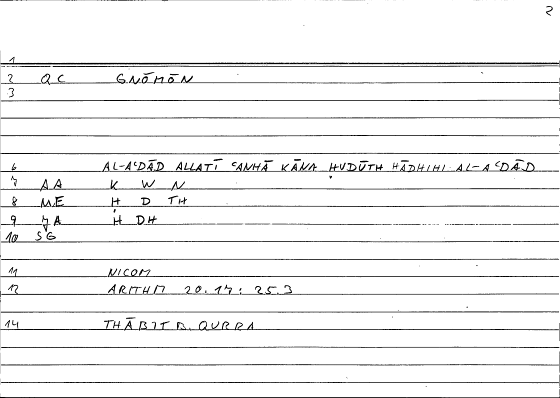 2
1
2 QC GNŌMŌN
3
6 AL-AʿDĀD ALLATĪ ʿANHĀ KĀNA ḤUDŪTH HĀDHIHI AL-AʿDĀD
7 AA K W N
8 ME Ḥ D TH
9 H DH
10 SG
11 NICOM
12 ARITHM 20.17: 25.3
14 THĀBIT B. QURRA